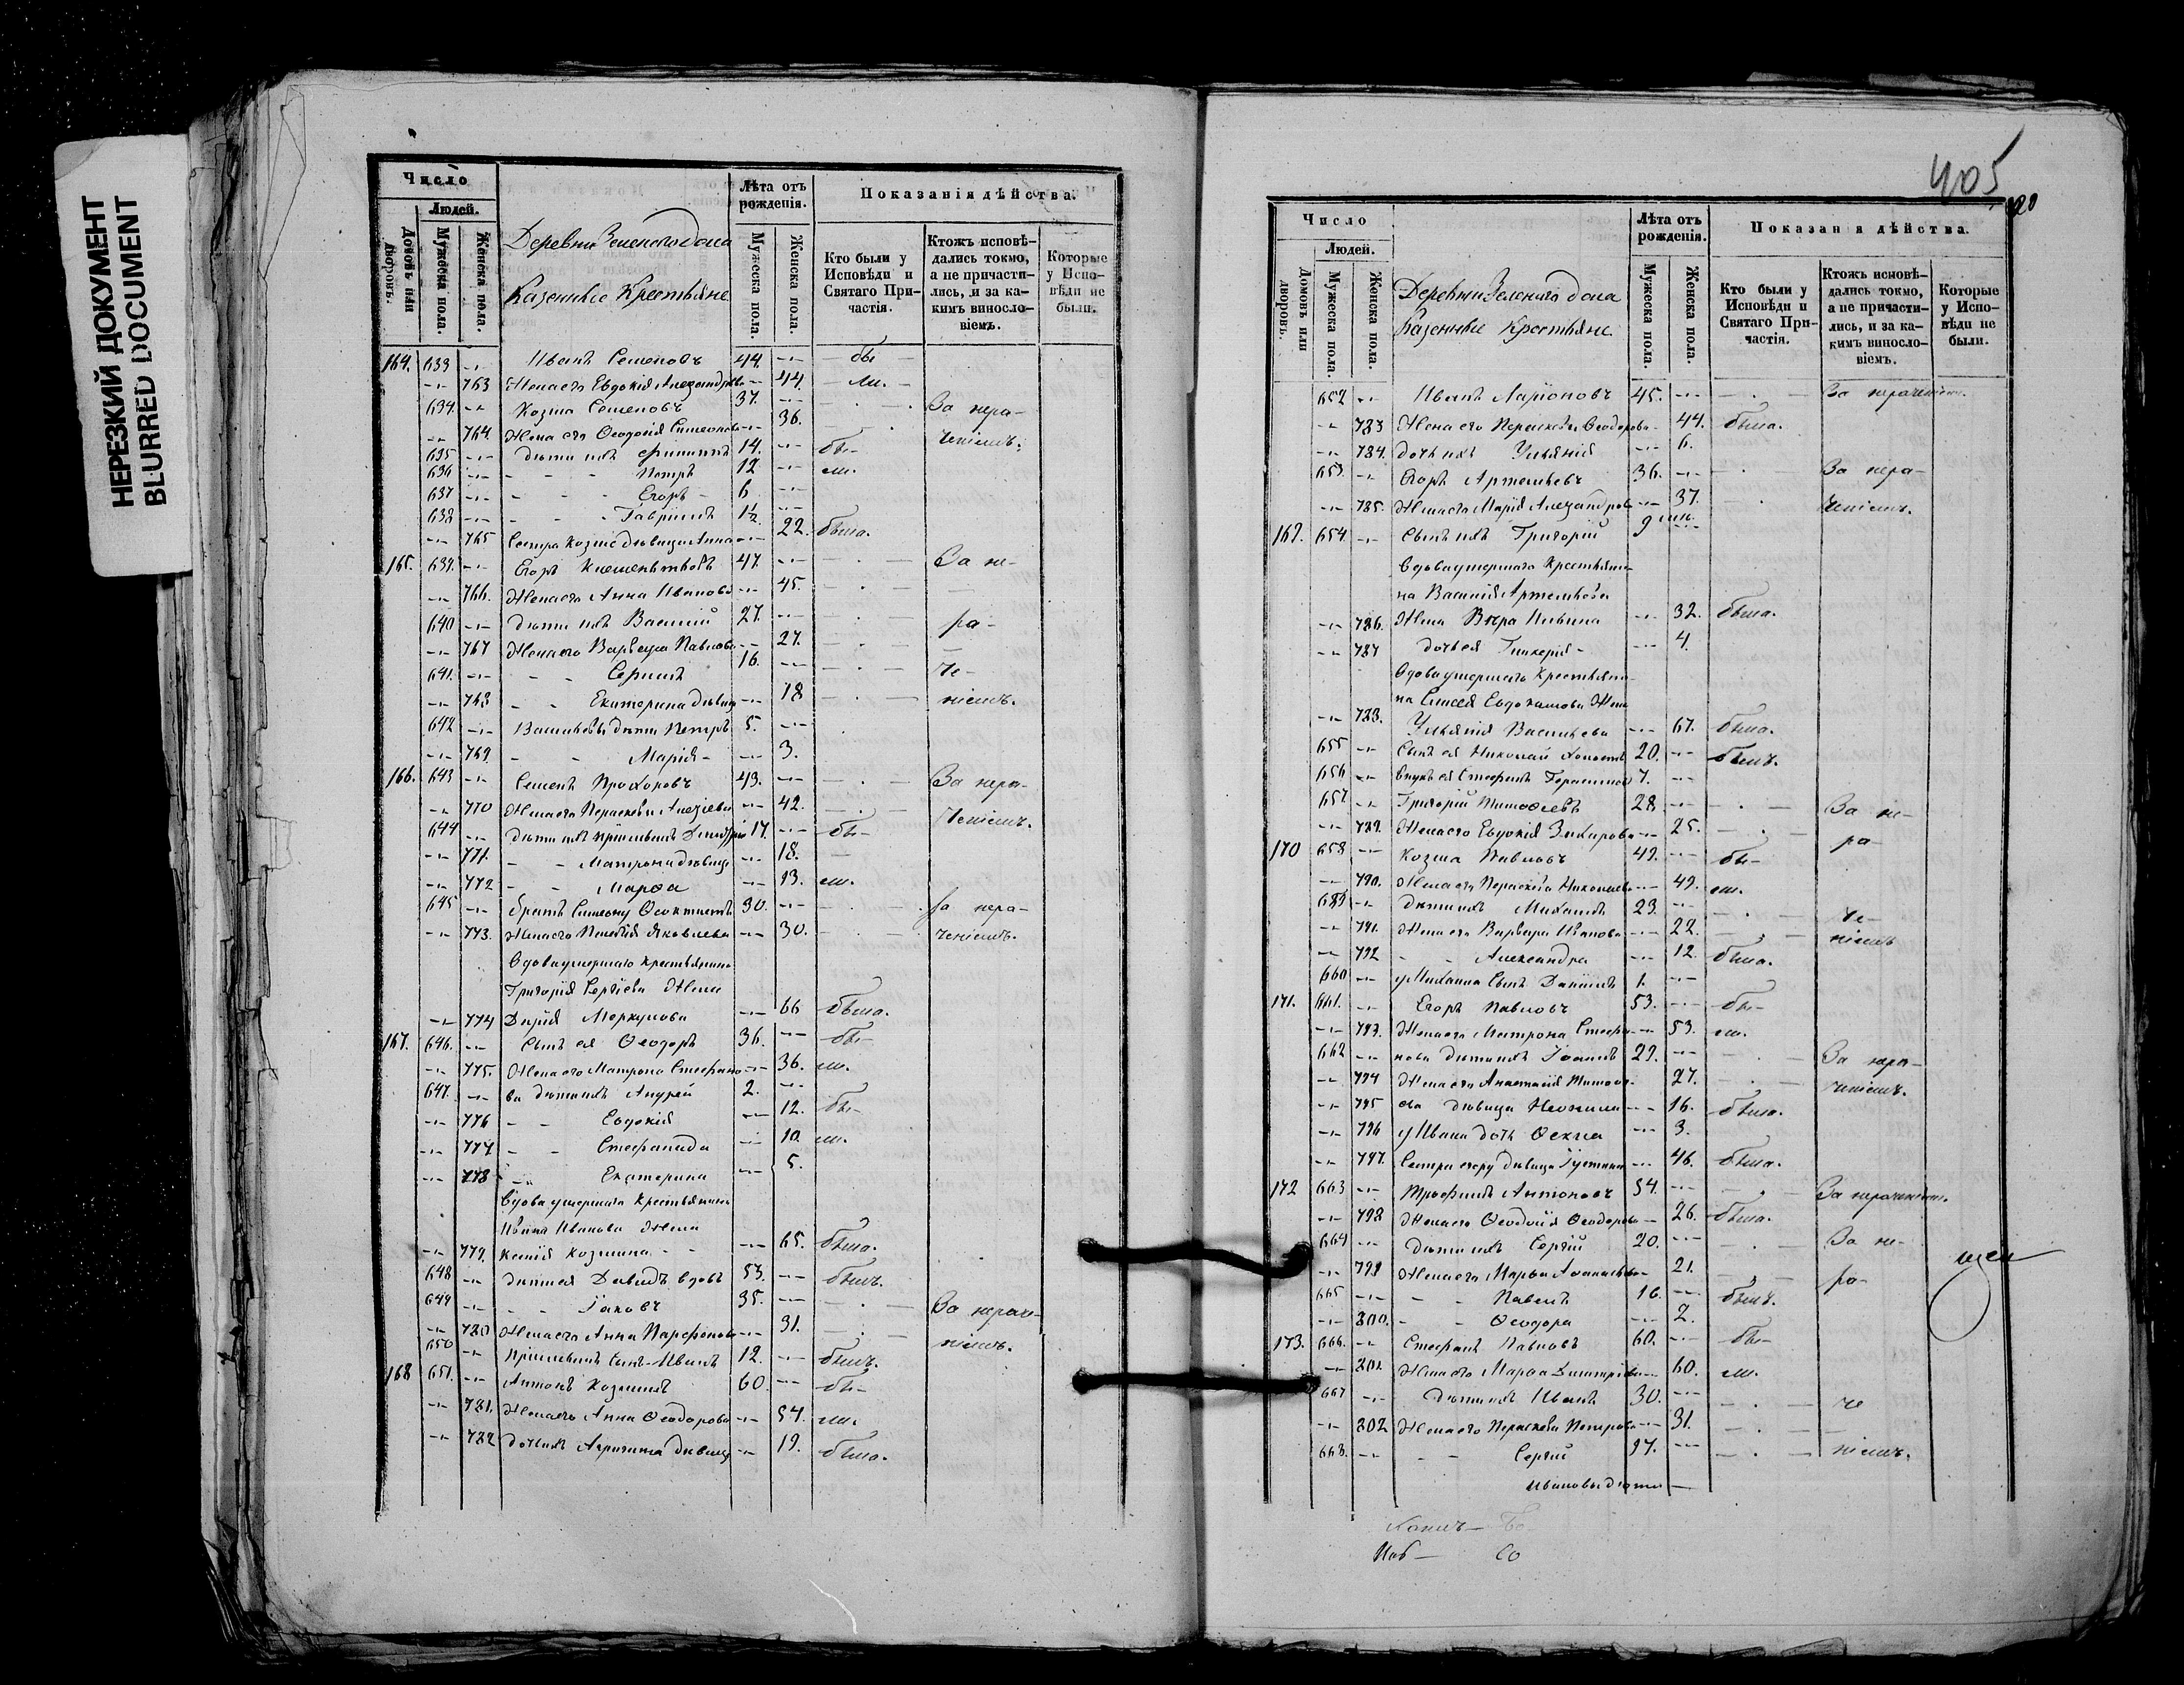 НЕРЕЗКИЙ ДОКУМЕНТ
BLURRED DOCUMENT
Число
Людей.
Домовъ или дворовъ.
Мужеска пола.
Женска пола.
Деревни Зеленого дола
Казенные Крестьяне
Лѣта отъ рожденія.
Мужеска пола.
Женска пола.
Показанія дѣйства.
Кто были у Исповѣди и Святаго Причастія.
Ктожъ исповѣдались токмо, а не причастились, и за какимъ винословіемъ.
Которые у Исповѣди не были.
164. 633 Иванъ Семеновъ 44. бы-
763 Жена его Евдокія Александрова 44. ли.
634. Козма Семеновъ 37. За нера-
764. Жена его Ѳеодосія Симеонова 36. ченіемъ.
635 Дѣти ихъ Филиппъ 14. бы-
636 Петръ 12 ли.
637 Егоръ 6
638 Гавріилъ 1½
765 Сестра Козмы дѣвица Анна 22. была.
165. 639. Егоръ Клементьевъ 47. За не-
766. Жена его Анна Иванова 45.
640 Дѣти ихъ Василій 27. ра-
767 Жена его Варвара Павлова 27.
641. Сергій 16. че-
768 Екатерина дѣвица 18 ніемъ.
642 Васильевы дѣти Петръ 5.
769. Марія 3.
166. 643 Семенъ Прохоровъ 49. За нера-
770 Жена его Параскева Алексіева 42. ченіемъ.
644 Дѣти ихъ пріемышъ Димитрій 17. бы-
771. Матрона дѣвица 18.
772 Марѳа 13. ли.
645 братъ Симеону Ѳеоктистъ 30. за нера-
773. Жена его Пелагія Яковлева 30. ченіемъ.
Вдова умершаго Крестьянина
Григорія Сергіева Жена
774 Дарія Меркулова 66 была.
167. 646. Сынъ ея Ѳеодоръ 36. бы-
775. Жена его Матрона Стефано- 36. ли.
647. ва дѣти ихъ Андрей 2.
776 Евдокія 12. бы-
777 Стефанида 10. ли.
778 Екатерина 5.
Вдова умершаго Крестьянина
Ивана Иванова Жена
779. Ксенія Козмина 65. была.
648 Дѣти ея Давидъ вдовъ 53. былъ.
649 Іаковъ 35. За нераче-
780 Жена его Анна Парфенова 31. ніемъ.
650 Пріемышъ Сынъ Иванъ 12. былъ.
168 651. Антонъ Козминъ 60. бы-
781. Жена его Анна Ѳеодорова 54. ли.
782 Дочь ихъ Агрипина дѣвица 19. была.
405
Число
Людей.
Домовъ или дворовъ.
Мужеска пола.
Женска пола.
Деревни Зеленого дола
Казенные Крестьяне.
Лѣта отъ рожденія.
Мужеска пола.
Женска пола.
Показан я дѣйства.
Кто были у Исповѣди и Святаго Причастія.
Ктожъ исповѣдались токмо, а не причастились, и за какимъ винословіемъ.
Которые у Исповѣди не были.
652 Иванъ Ларіоновъ 45. За нераченіемъ.
783 Жена его Параскева Ѳеодорова 44. была.
784. дочь ихъ Ульянія 6.
653. Егоръ Артемьевъ 36. За нера-
785. Жена его Марія Александрова 37. ченіемъ.
169. 654. Сынъ ихъ Григорій 9
Вдова умершаго Крестьяни-
на Василія Артемьева
786. Жена Вѣра 32. была.
787 дочь ея Гликерія 4.
Вдова умершаго Крестьяни-
на Елисея Евдокимова Жена
788. Ульянія Васильева 67. была.
655 Сынъ ея Николай 20. былъ.
656 внукъ ея Стефанъ 7.
657 Григорій Тимоѳеевъ 28. За не-
789. Жена его Евдокія Захарова 25. ра-
170 658 Козма Павловъ 49. бы-
790. Жена его Параскева Николаева 49. ли.
659 Дѣти ихъ Михаилъ 23. че-
791. Жена его Варвара Иванова 22. ніемъ
792 Александра 12. была.
660 у Михаила Сынъ Даніилъ 1.
171. 661. Егоръ Павловъ 53. бы-
793. Жена его Матрона Стефа- 53. ли.
662 нова дѣти ихъ Іоаннъ 29. За нера-
794 Жена его Анастасія Тимоѳе- 27. ченіемъ.
795 ева дѣвица Неонила 16. была.
796 у Ивана дочь Ѳекла 3.
797. Сестра Егору дѣвица Іустина 46. была.
172 663 Трофимъ Антоновъ 54. За нераченіемъ.
798 Жена его Ѳеодосія Ѳеодорова 26. была.
664 Дѣти ихъ Сергій 20. За не-
799 Жена его Марѳа Аѳанасьева 21. ра-
665 Павелъ 16. былъ.
800. Ѳеодора 2.
173. 666. Стефанъ Павловъ 60. бы-
801 Жена его Марѳа Димитріева 60. ли.
667 Дѣти ихъ Иванъ 30. че
802 Жена его Параскева Петрова 31.
668. Сергій 27. ніемъ.
Ивановы дѣти